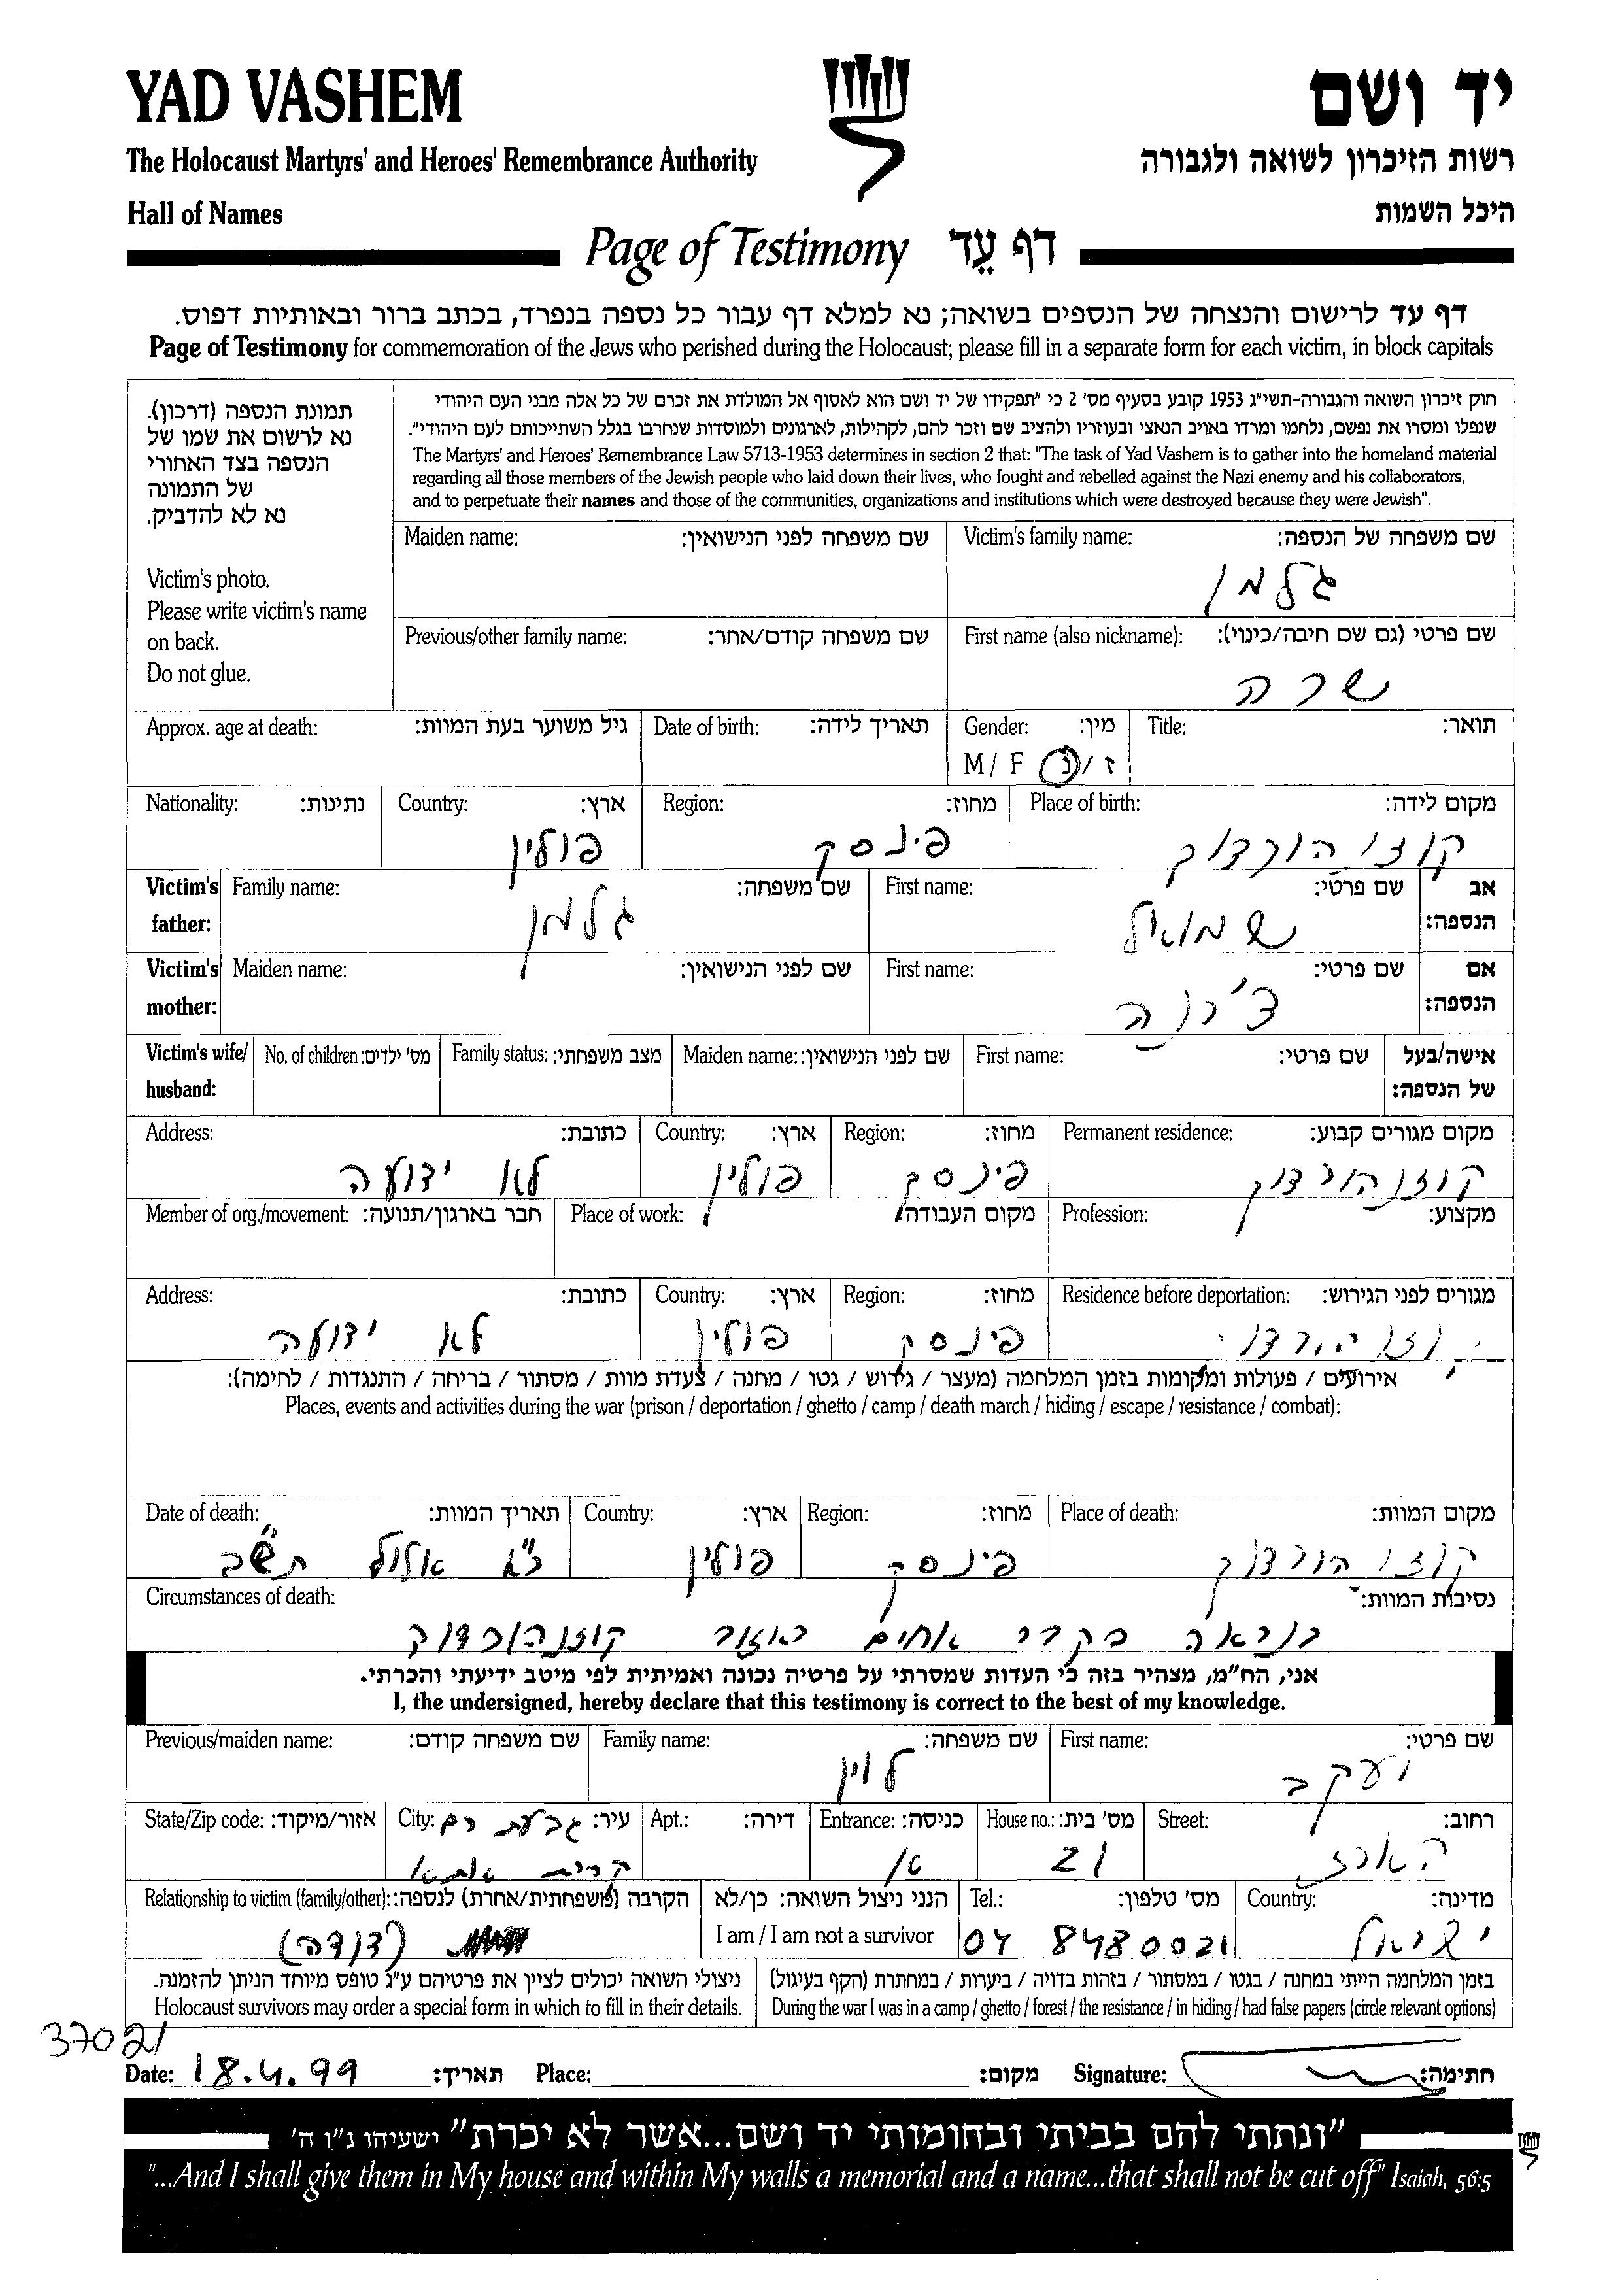 YAD VASHEM
יד ושם
The Holocaust Martyrs' and Heroes' Remembrance Authority
רשות הזיכרון לשואה ולגבורה
Hall of Names
היכל השמות
Page of Testimony דף עֵד
דף עד לרישום והנצחה של הנספים בשואה; נא למלא דף עבור כל נספה בנפרד, בכתב ברור ובאותיות דפוס.
Page of Testimony for commemoration of the Jews who perished during the Holocaust; please fill in a separate form for each victim, in block capitals
תמונת הנספה (דרכון).
נא לרשום את שמו של
הנספה בצד האחורי
של התמונה
נא לא להדביק.
Victim's photo.
Please write victim's name
on back.
Do not glue.
חוק זיכרון השואה והגבורה-תשי"ג 1953 קובע בסעיף מס' 2 כי "תפקידו של יד ושם הוא לאסוף אל המולדת את זכרם של כל אלה מבני העם היהודי
שנפלו ומסרו את נפשם, נלחמו ומרדו באויב הנאצי ובעוזריו ולהציב שם וזכר להם, לקהילות, לארגונים ולמוסדות שנחרבו בגלל השתייכותם לעם היהודי".
The Martyrs' and Heroes' Remembrance Law 5713-1953 determines in section 2 that: "The task of Yad Vashem is to gather into the homeland material
regarding all those members of the Jewish people who laid down their lives, who fought and rebelled against the Nazi enemy and his collaborators,
and to perpetuate their names and those of the communities, organizations and institutions which were destroyed because they were Jewish".
שם משפחה של הנספה: Victim's family name:
גלמן
שם משפחה לפני הנישואין: Maiden name:
שם פרטי (גם שם חיבה/כינוי): First name (also nickname):
שרה
שם משפחה קודם/אחר: Previous/other family name:
תואר: Title:
מין: Gender:
ז/נ M/F
תאריך לידה: Date of birth:
גיל משוער בעת המוות: Approx. age at death:
מקום לידה: Place of birth:
קוזנהורדוק
מחוז: Region:
פינסק
ארץ: Country:
פולין
נתינות: Nationality:
אב
הנספה:
שם פרטי: First name:
שמואל
שם משפחה: Family name:
גלמן
Victim's
father:
אם
הנספה:
שם פרטי: First name:
צ'רנה
שם לפני הנישואין: Maiden name:
Victim's
mother:
אישה/בעל
של הנספה:
שם פרטי: First name:
שם לפני הנישואין: Maiden name:
מצב משפחתי: Family status:
מס' ילדים: No. of children:
Victim's wife/
husband:
מקום מגורים קבוע: Permanent residence:
קוזנהורדוק
מחוז: Region:
פינסק
ארץ: Country:
פולין
כתובת: Address:
לא ידועה
מקצוע: Profession:
מקום העבודה: Place of work:
חבר בארגון/תנועה: Member of org./movement:
מגורים לפני הגירוש: Residence before deportation:
מחוז: Region:
פינסק
ארץ: Country:
פולין
כתובת: Address:
לא ידועה
אירועים / פעולות ומקומות בזמן המלחמה (מעצר / גירוש / גטו / מחנה / צעדת מוות / מסתור / בריחה / התנגדות / לחימה):
Places, events and activities during the war (prison / deportation / ghetto / camp / death march / hiding / escape / resistance / combat):
מקום המוות: Place of death:
קוזנהורדוק
מחוז: Region:
פינסק
ארץ: Country:
פולין
תאריך המוות: Date of death:
אלול תש"ב
נסיבות המוות: Circumstances of death:
בקבר אחים באזור קוזנהורדוק
אני, הח"מ, מצהיר בזה כי העדות שמסרתי על פרטיה נכונה ואמיתית לפי מיטב ידיעתי והכרתי.
I, the undersigned, hereby declare that this testimony is correct to the best of my knowledge.
שם פרטי: First name:
יעקב
שם משפחה: Family name:
לוין
שם משפחה קודם: Previous/maiden name:
רחוב: Street:
הארז
מס' בית: House no.:
21
כניסה: Entrance:
דירה: Apt.:
עיר: City:
גבעת רם
קרית אתא
אזור/מיקוד: State/Zip code:
מדינה: Country:
ישראל
מס' טלפון: Tel.:
04 8480021
הנני ניצול השואה: כן/לא
I am / I am not a survivor
הקרבה (משפחתית/אחרת) לנספה: Relationship to victim (family/other):
(דודה)
בזמן המלחמה הייתי במחנה / בגטו / במסתור / בזהות בדויה / ביערות / במחתרת (הקף בעיגול)
During the war I was in a camp / ghetto / forest / the resistance / in hiding / had false papers (circle relevant options)
ניצולי השואה יכולים לציין את פרטיהם ע"ג טופס מיוחד הניתן להזמנה.
Holocaust survivors may order a special form in which to fill in their details.
37021
Date: 18.4.99 תאריך: Place: מקום: Signature: חתימה:
"ונתתי להם בביתי ובחומותי יד ושם...אשר לא יכרת" ישעיהו נ"ו ה'
"...And I shall give them in My house and within My walls a memorial and a name...that shall not be cut off" Isaiah, 56:5